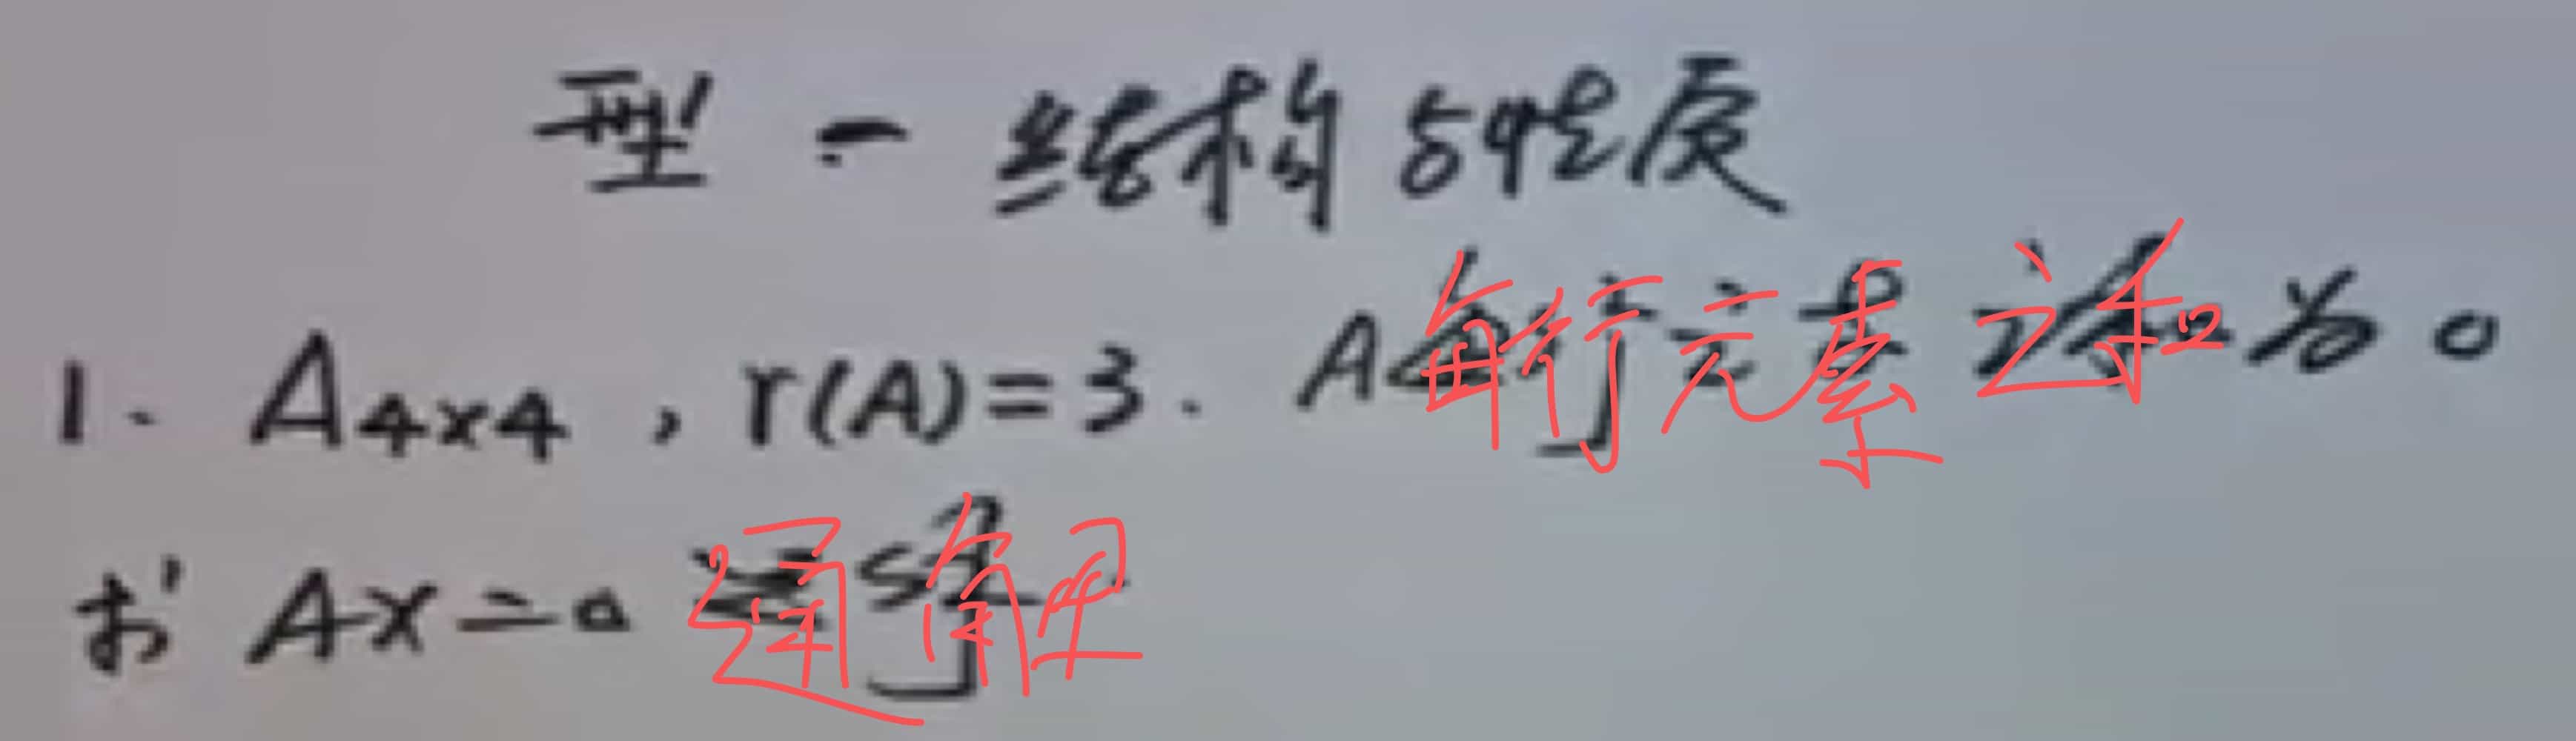 型一 结构与性质
1. A4×4, r(A)=3. A每行元素之和为0
求 AX=0 通解